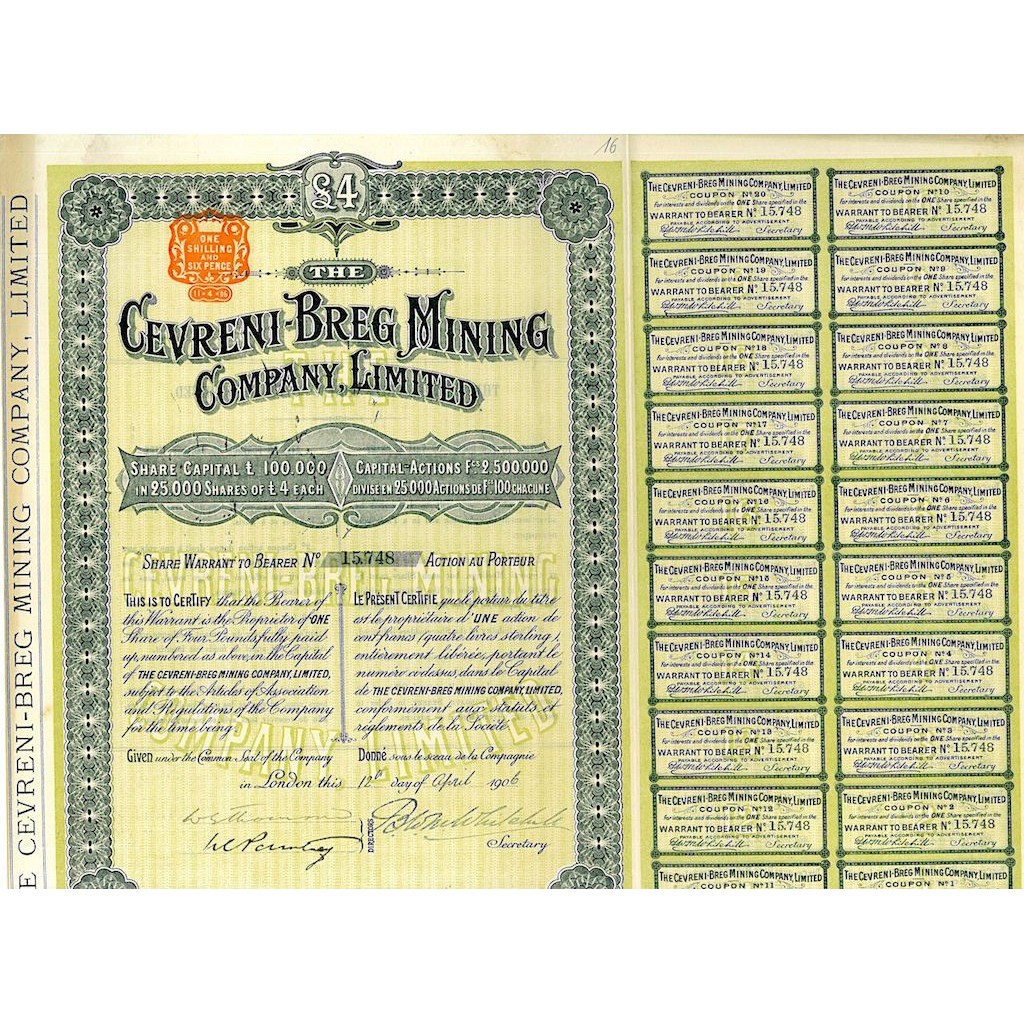 THE CEVRENI-BREG MINING COMPANY, LIMITED
16
£4
ONE
SHILLING
AND
SIX PENCE
11·4·06
THE
CEVRENI-BREG MINING
COMPANY, LIMITED
SHARE CAPITAL £ 100.000
IN 25.000 SHARES OF £4 EACH
CAPITAL-ACTIONS Fcs 2.500.000
DIVISÉ EN 25.000 ACTIONS DE Fcs 100 CHACUNE
SHARE WARRANT TO BEARER No 15.748 ACTION AU PORTEUR
THIS IS TO CERTIFY that the Bearer of
this Warrant is the Proprietor of ONE
Share of Four Pounds fully paid
up, numbered as above, in the Capital
of THE CEVRENI-BREG MINING COMPANY, LIMITED,
subject to the Articles of Association
and Regulations of the Company
for the time being.
Given under the Common Seal of the Company
LE PRÉSENT CERTIFIE que le porteur du titre
est le propriétaire d'UNE action de
cent francs (quatre livres sterling),
entièrement libérée, portant le
numéro ci-dessus, dans le Capital
de THE CEVRENI-BREG MINING COMPANY, LIMITED,
conformément aux statuts et
règlements de la Société.
Donné sous le sceau de la Compagnie
in London this 12th day of April 1906
DIRECTORS
Secretary
THE CEVRENI-BREG MINING COMPANY, LIMITED
COUPON No 20
For interests and dividends on the ONE Share specified in the
WARRANT TO BEARER No 15.748
PAYABLE ACCORDING TO ADVERTISEMENT
Secretary
THE CEVRENI-BREG MINING COMPANY, LIMITED
COUPON No 10
For interests and dividends on the ONE Share specified in the
WARRANT TO BEARER No 15.748
PAYABLE ACCORDING TO ADVERTISEMENT
Secretary
THE CEVRENI-BREG MINING COMPANY, LIMITED
COUPON No 19
For interests and dividends on the ONE Share specified in the
WARRANT TO BEARER No 15.748
PAYABLE ACCORDING TO ADVERTISEMENT
Secretary
THE CEVRENI-BREG MINING COMPANY, LIMITED
COUPON No 9
For interests and dividends on the ONE Share specified in the
WARRANT TO BEARER No 15.748
PAYABLE ACCORDING TO ADVERTISEMENT
Secretary
THE CEVRENI-BREG MINING COMPANY, LIMITED
COUPON No 18
For interests and dividends on the ONE Share specified in the
WARRANT TO BEARER No 15.748
PAYABLE ACCORDING TO ADVERTISEMENT
Secretary
THE CEVRENI-BREG MINING COMPANY, LIMITED
COUPON No 8
For interests and dividends on the ONE Share specified in the
WARRANT TO BEARER No 15.748
PAYABLE ACCORDING TO ADVERTISEMENT
Secretary
THE CEVRENI-BREG MINING COMPANY, LIMITED
COUPON No 17
For interests and dividends on the ONE Share specified in the
WARRANT TO BEARER No 15.748
PAYABLE ACCORDING TO ADVERTISEMENT
Secretary
THE CEVRENI-BREG MINING COMPANY, LIMITED
COUPON No 7
For interests and dividends on the ONE Share specified in the
WARRANT TO BEARER No 15.748
PAYABLE ACCORDING TO ADVERTISEMENT
Secretary
THE CEVRENI-BREG MINING COMPANY, LIMITED
COUPON No 16
For interests and dividends on the ONE Share specified in the
WARRANT TO BEARER No 15.748
PAYABLE ACCORDING TO ADVERTISEMENT
Secretary
THE CEVRENI-BREG MINING COMPANY, LIMITED
COUPON No 6
For interests and dividends on the ONE Share specified in the
WARRANT TO BEARER No 15.748
PAYABLE ACCORDING TO ADVERTISEMENT
Secretary
THE CEVRENI-BREG MINING COMPANY, LIMITED
COUPON No 15
For interests and dividends on the ONE Share specified in the
WARRANT TO BEARER No 15.748
PAYABLE ACCORDING TO ADVERTISEMENT
Secretary
THE CEVRENI-BREG MINING COMPANY, LIMITED
COUPON No 5
For interests and dividends on the ONE Share specified in the
WARRANT TO BEARER No 15.748
PAYABLE ACCORDING TO ADVERTISEMENT
Secretary
THE CEVRENI-BREG MINING COMPANY, LIMITED
COUPON No 14
For interests and dividends on the ONE Share specified in the
WARRANT TO BEARER No 15.748
PAYABLE ACCORDING TO ADVERTISEMENT
Secretary
THE CEVRENI-BREG MINING COMPANY, LIMITED
COUPON No 4
For interests and dividends on the ONE Share specified in the
WARRANT TO BEARER No 15.748
PAYABLE ACCORDING TO ADVERTISEMENT
Secretary
THE CEVRENI-BREG MINING COMPANY, LIMITED
COUPON No 13
For interests and dividends on the ONE Share specified in the
WARRANT TO BEARER No 15.748
PAYABLE ACCORDING TO ADVERTISEMENT
Secretary
THE CEVRENI-BREG MINING COMPANY, LIMITED
COUPON No 3
For interests and dividends on the ONE Share specified in the
WARRANT TO BEARER No 15.748
PAYABLE ACCORDING TO ADVERTISEMENT
Secretary
THE CEVRENI-BREG MINING COMPANY, LIMITED
COUPON No 12
For interests and dividends on the ONE Share specified in the
WARRANT TO BEARER No 15.748
PAYABLE ACCORDING TO ADVERTISEMENT
Secretary
THE CEVRENI-BREG MINING COMPANY, LIMITED
COUPON No 2
For interests and dividends on the ONE Share specified in the
WARRANT TO BEARER No 15.748
PAYABLE ACCORDING TO ADVERTISEMENT
Secretary
THE CEVRENI-BREG MINING COMPANY, LIMITED
COUPON No 11
THE CEVRENI-BREG MINING COMPANY, LIMITED
COUPON No 1
£4